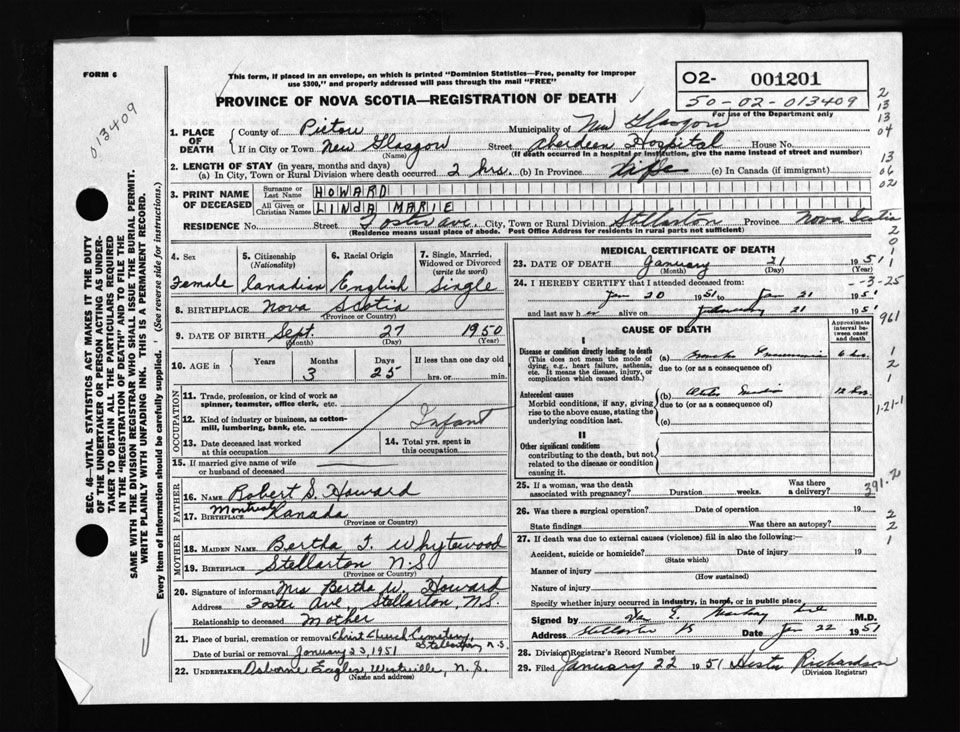 FORM 6
This form, if placed in an envelope, on which is printed "Dominion Statistics—Free, penalty for improper
use $300," and properly addressed will pass through the mail "FREE"
02- 001201
50-02-013409
For use of the Department only
013409
PROVINCE OF NOVA SCOTIA—REGISTRATION OF DEATH
1. PLACE OF DEATH
County of Pictou Municipality of New Glasgow
If in City or Town New Glasgow Street Aberdeen Hospital House No.
(Name) (If death occurred in a hospital or institution, give the name instead of street and number)
2. LENGTH OF STAY (in years, months and days)
(a) In City, Town or Rural Division where death occurred 2 hrs. (b) In Province Life (c) In Canada (if immigrant)
3. PRINT NAME OF DECEASED
Surname or Last Name HOWARD
All Given or Christian Names LINDA MARIE
RESIDENCE No. Street Foster Ave. City, Town or Rural Division Stellarton Province Nova Scotia
(Residence means usual place of abode. Post Office Address for residents in rural parts not sufficient)
4. Sex Female
5. Citizenship (Nationality) Canadian
6. Racial Origin English
7. Single, Married, Widowed or Divorced (write the word) Single
8. BIRTHPLACE Nova Scotia
(Province or Country)
9. DATE OF BIRTH Sept. 27 1950
(Month) (Day) (Year)
10. AGE in Years Months 3 Days 25 If less than one day old hrs. or min.
OCCUPATION
11. Trade, profession, or kind of work as
spinner, teamster, office clerk, etc.
12. Kind of industry or business, as cotton-
mill, lumbering, bank, etc.
Infant
13. Date deceased last worked
at this occupation
14. Total yrs. spent in
this occupation
15. If married give name of wife
or husband of deceased
FATHER
16. Name Robert S. Howard
17. Birthplace Montreal Kanada
(Province or Country)
MOTHER
18. Maiden Name Bertha I. Whytewood
19. Birthplace Stellarton N.S.
(Province or Country)
20. Signature of informant Mrs Bertha W. Howard
Address Foster Ave, Stellarton, N.S.
Relationship to deceased Mother
21. Place of burial, cremation or removal Christ Church Cemetery, Stellarton N.S.
Date of burial or removal January 23, 1951
22. UNDERTAKER Osborne Eagles Westville, N.S.
(Name and address)
MEDICAL CERTIFICATE OF DEATH
23. DATE OF DEATH January 21 1951
(Month) (Day) (Year)
24. I HEREBY CERTIFY that I attended deceased from:
Jan 20 1951 to Jan 21 1951
and last saw h alive on January 21 1951
CAUSE OF DEATH
Approximate interval between onset and death
I
Disease or condition directly leading to death (a) Pneumonia 6 hrs.
(This does not mean the mode of due to (or as a consequence of)
dying, e.g., heart failure, asthenia,
etc. It means the disease, injury, or
complication which caused death.)
Antecedent causes (b) Otitis Media 12 hrs.
Morbid conditions, if any, giving due to (or as a consequence of)
rise to the above cause, stating the
underlying condition last. (c)
II
Other significant conditions
contributing to the death, but not
related to the disease or condition
causing it.
25. If a woman, was the death
associated with pregnancy? Duration weeks. Was there a delivery?
26. Was there a surgical operation? Date of operation 19
State findings Was there an autopsy?
27. If death was due to external causes (violence) fill in also the following:—
Accident, suicide or homicide? Date of injury 19
(State which)
Manner of injury
(How sustained)
Nature of injury
Specify whether injury occurred in industry, in home, or in public place
Signed by M.D.
Address Stellarton NS Date Jan 22 1951
28. Division Registrar's Record Number
29. Filed January 22 1951 Hester Richardson
(Division Registrar)
SEC. 46—VITAL STATISTICS ACT MAKES IT THE DUTY
OF THE UNDERTAKER OR PERSON ACTING AS UNDER-
TAKER TO OBTAIN ALL THE PARTICULARS REQUIRED
IN THE "REGISTRATION OF DEATH" AND TO FILE THE
SAME WITH THE DIVISION REGISTRAR WHO SHALL ISSUE THE BURIAL PERMIT.
WRITE PLAINLY WITH UNFADING INK. THIS IS A PERMANENT RECORD.
Every item of information should be carefully supplied. (See reverse side for instructions.)
2
13
13
04
13
06
02
2
0
1
1
--3-25
961
1
2
1
1-21-1
391-2
2
2
1